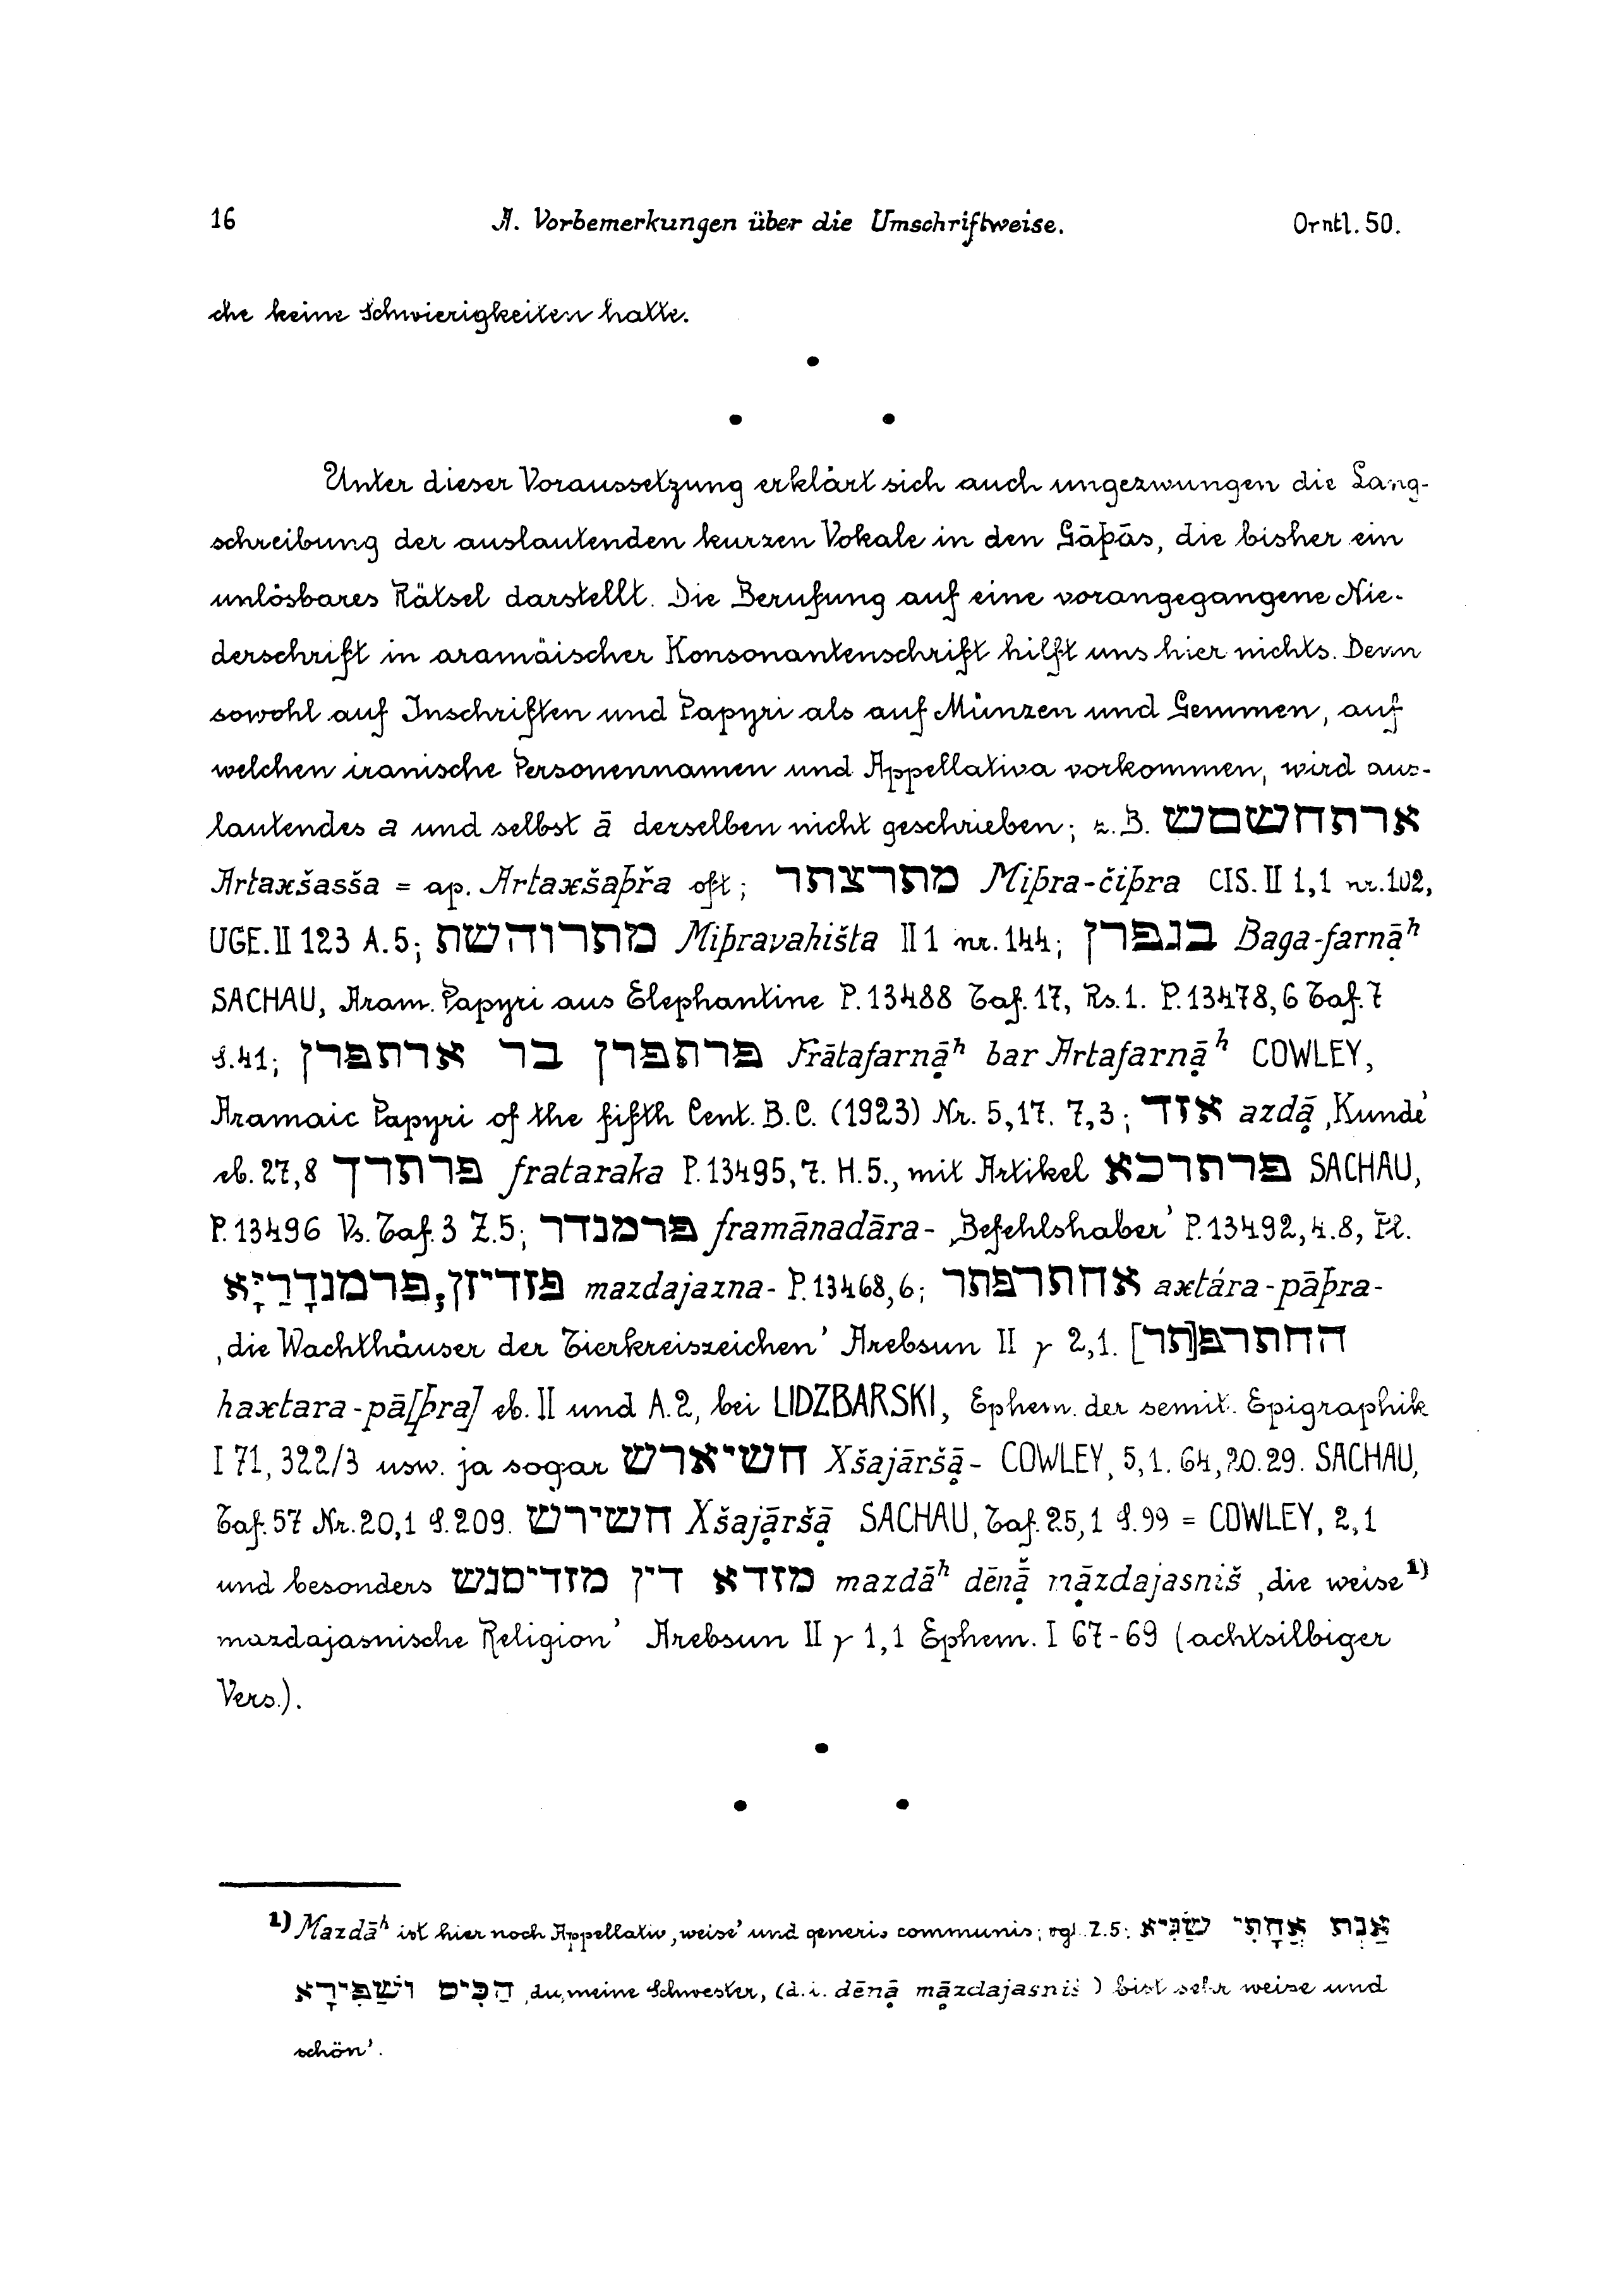 16 A. Vorbemerkungen über die Umschriftweise. Orntl. 50.
che keine Schwierigkeiten hatte.
Unter dieser Voraussetzung erklärt sich auch ungezwungen die Lang-
schreibung der auslautenden kurzen Vokale in den Gāþās, die bisher ein
unlösbares Rätsel darstellt. Die Berufung auf eine vorangegangene Nie-
derschrift in aramäischer Konsonantenschrift hilft uns hier nichts. Denn
sowohl auf Inschriften und Papyri als auf Münzen und Gemmen, auf
welchen iranische Personennamen und Appellativa vorkommen, wird aus-
lautendes a und selbst ā derselben nicht geschrieben; z. B. ארתחשסש
Artaxšasša = ap. Artaxšaþřa oft; מתרצתר Miþra-čiþra CIS. II 1,1 nr. 102,
UGE. II 123 A. 5; מתרוהשת Miþravahišta II 1 nr. 144; בגפרן Baga-farnā̰ʰ
SACHAU, Aram. Papyri aus Elephantine P. 13488 Taf. 17, Rs. 1. P. 13478, 6 Taf. 7
S. 41; פרתפרן בר ארתפרן Frātafarnā̰ʰ bar Artafarnā̰ʰ COWLEY,
Aramaic Papyri of the fifth Cent. B.C. (1923) Nr. 5,17. 7,3; אזד azdā̰ ‚Kunde’
eb. 27,8 פרתרך frataraka P. 13495, 7. H. 5., mit Artikel פרתרכא SACHAU,
P. 13496 Vs. Taf. 3 Z. 5; פרמנדר framānadāra- ‚Befehlshaber’ P. 13492, 4. 8, Pl.
פרמנדָרַיָּא; פזדיזן mazdajazna- P. 13468, 6; אחתרפתר axtára-pāþra-
‚die Wachthäuser der Tierkreiszeichen’ Arebsun II γ 2,1. החתרפ[תר]
haxtara-pā[þra] eb. II und A. 2, bei LIDZBARSKI, Ephem. der semit. Epigraphik
I 71, 322/3 usw. ja sogar חשיארש Xšajāršā̰- COWLEY, 5,1. 64, 20. 29. SACHAU,
Taf. 57 Nr. 20,1 S. 209. חשירש Xšajā̰ršā̰ SACHAU, Taf. 25,1 S. 99 = COWLEY, 2,1
und besonders מזדא דין מזדיסנש mazdāʰ dēnā̰̆ mā̰zdajasniš ‚die weise ¹⁾
mazdajasnische Religion’ Arebsun II γ 1,1 Ephem. I 67-69 (achtsilbiger
Vers.).
¹⁾ Mazdāʰ ist hier noch Appellativ ‚weise’ und generis communis; vgl. Z. 5: אַנְתְּ אֲחָתִי שַׂגִּיא
הַכִּים וּשַׁפִּירָא ‚du, meine Schwester, (d. i. dēnā̰ mā̰zdajasniš) bist sehr weise und
schön’.